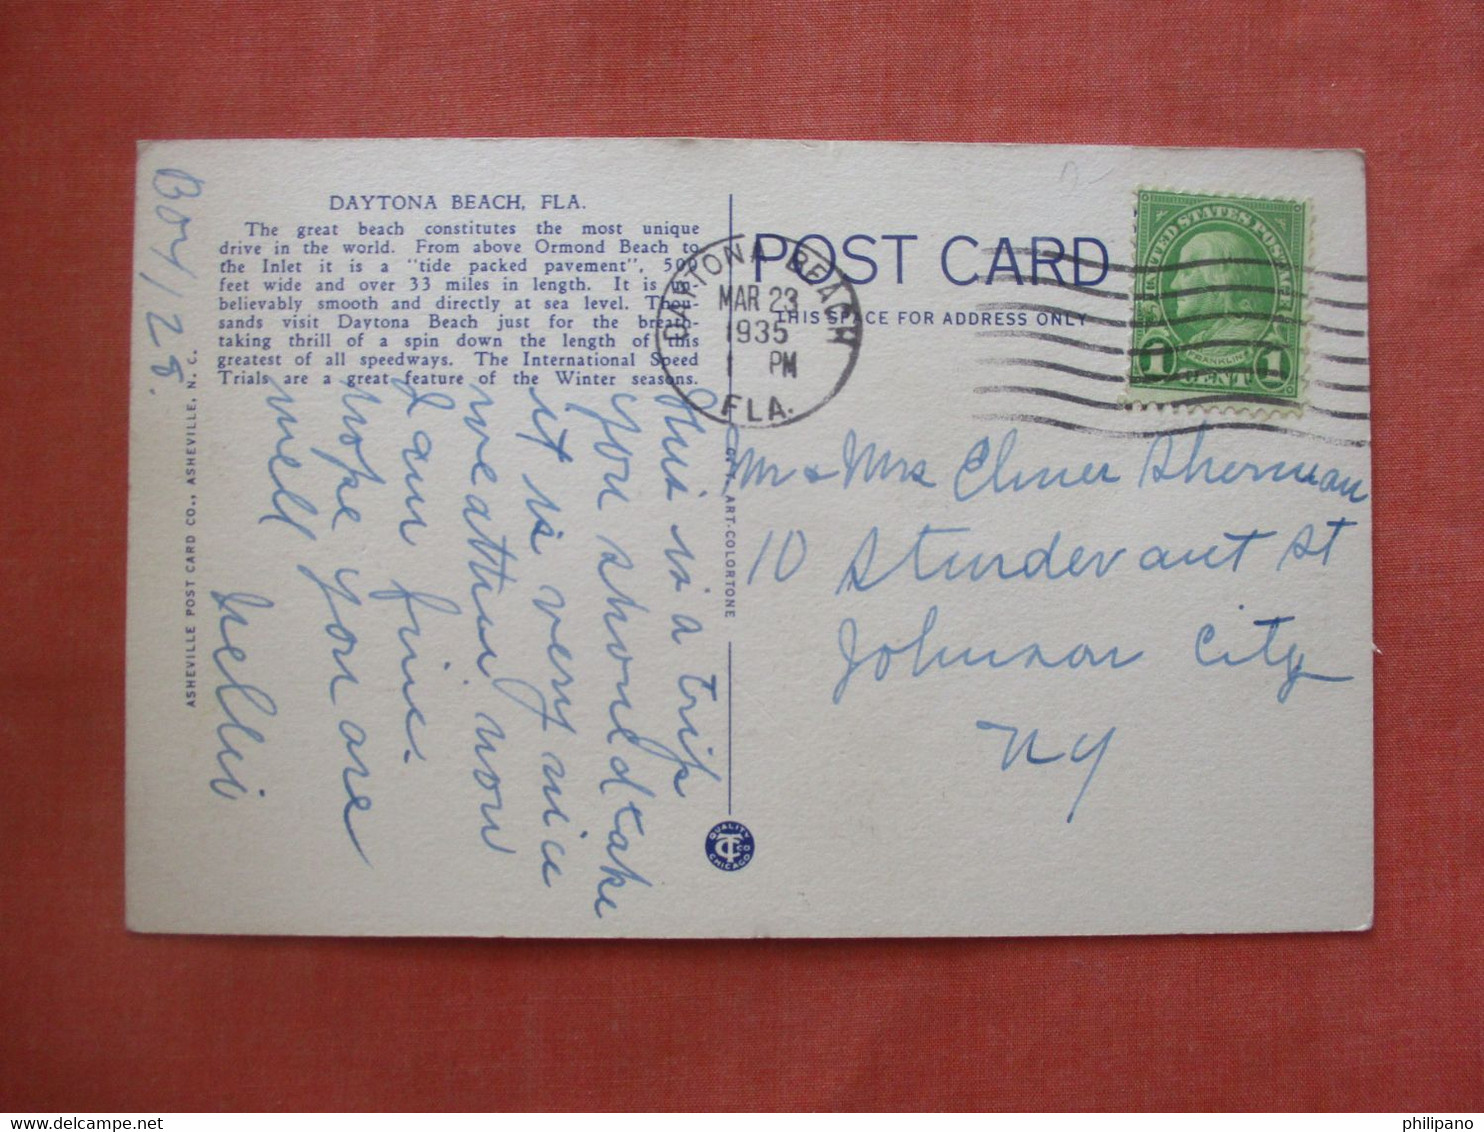 DAYTONA BEACH, FLA.
The great beach constitutes the most unique
drive in the world. From above Ormond Beach to
the Inlet it is a "tide packed pavement", 500
feet wide and over 33 miles in length. It is un-
believably smooth and directly at sea level. Thou-
sands visit Daytona Beach just for the breath-
taking thrill of a spin down the length of this
greatest of all speedways. The International Speed
Trials are a great feature of the Winter seasons.
This is a trip
you should take
it is very nice
weather now
I am fine.
hope you are
well
Nellie
Box 128.
ASHEVILLE POST CARD CO., ASHEVILLE, N. C.
C. T. ART-COLORTONE
QUALITY
CT CO
CHICAGO
POST CARD
THIS SPACE FOR ADDRESS ONLY
DAYTONA BEACH
MAR 23
1935
1 PM
FLA.
UNITED STATES POSTAGE
FRANKLIN
1 CENT 1
Mr & Mrs Elmer Sherman
10 Sturdevant St
Johnson City
NY
philipano